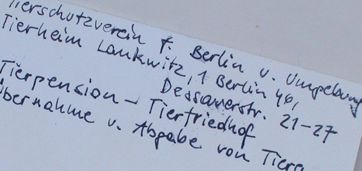 Tierschutzverein f. Berlin u. Umgebung
Tierheim Lankwitz, 1 Berlin 46,
Dessauerstr. 21-27
Tierpension - Tierfriedhof
Übernahme u. Abgabe von Tieren